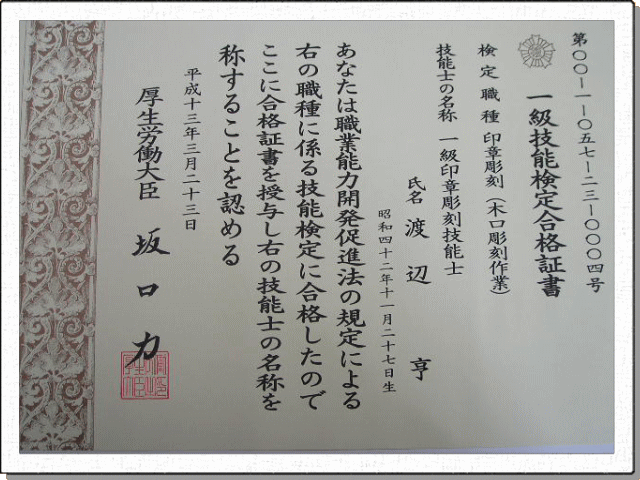 第〇〇－一－〇五七－二三－〇〇〇四号
一級技能検定合格証書
検定職種 印章彫刻（木口彫刻作業）
技能士の名称 一級印章彫刻技能士
氏名 渡辺 亨
昭和四十二年十一月二十七日生
あなたは職業能力開発促進法の規定による
右の職種に係る技能検定に合格したので
ここに合格証書を授与し右の技能士の名称を
称することを認める
平成十三年三月二十三日
厚生労働大臣 坂口力